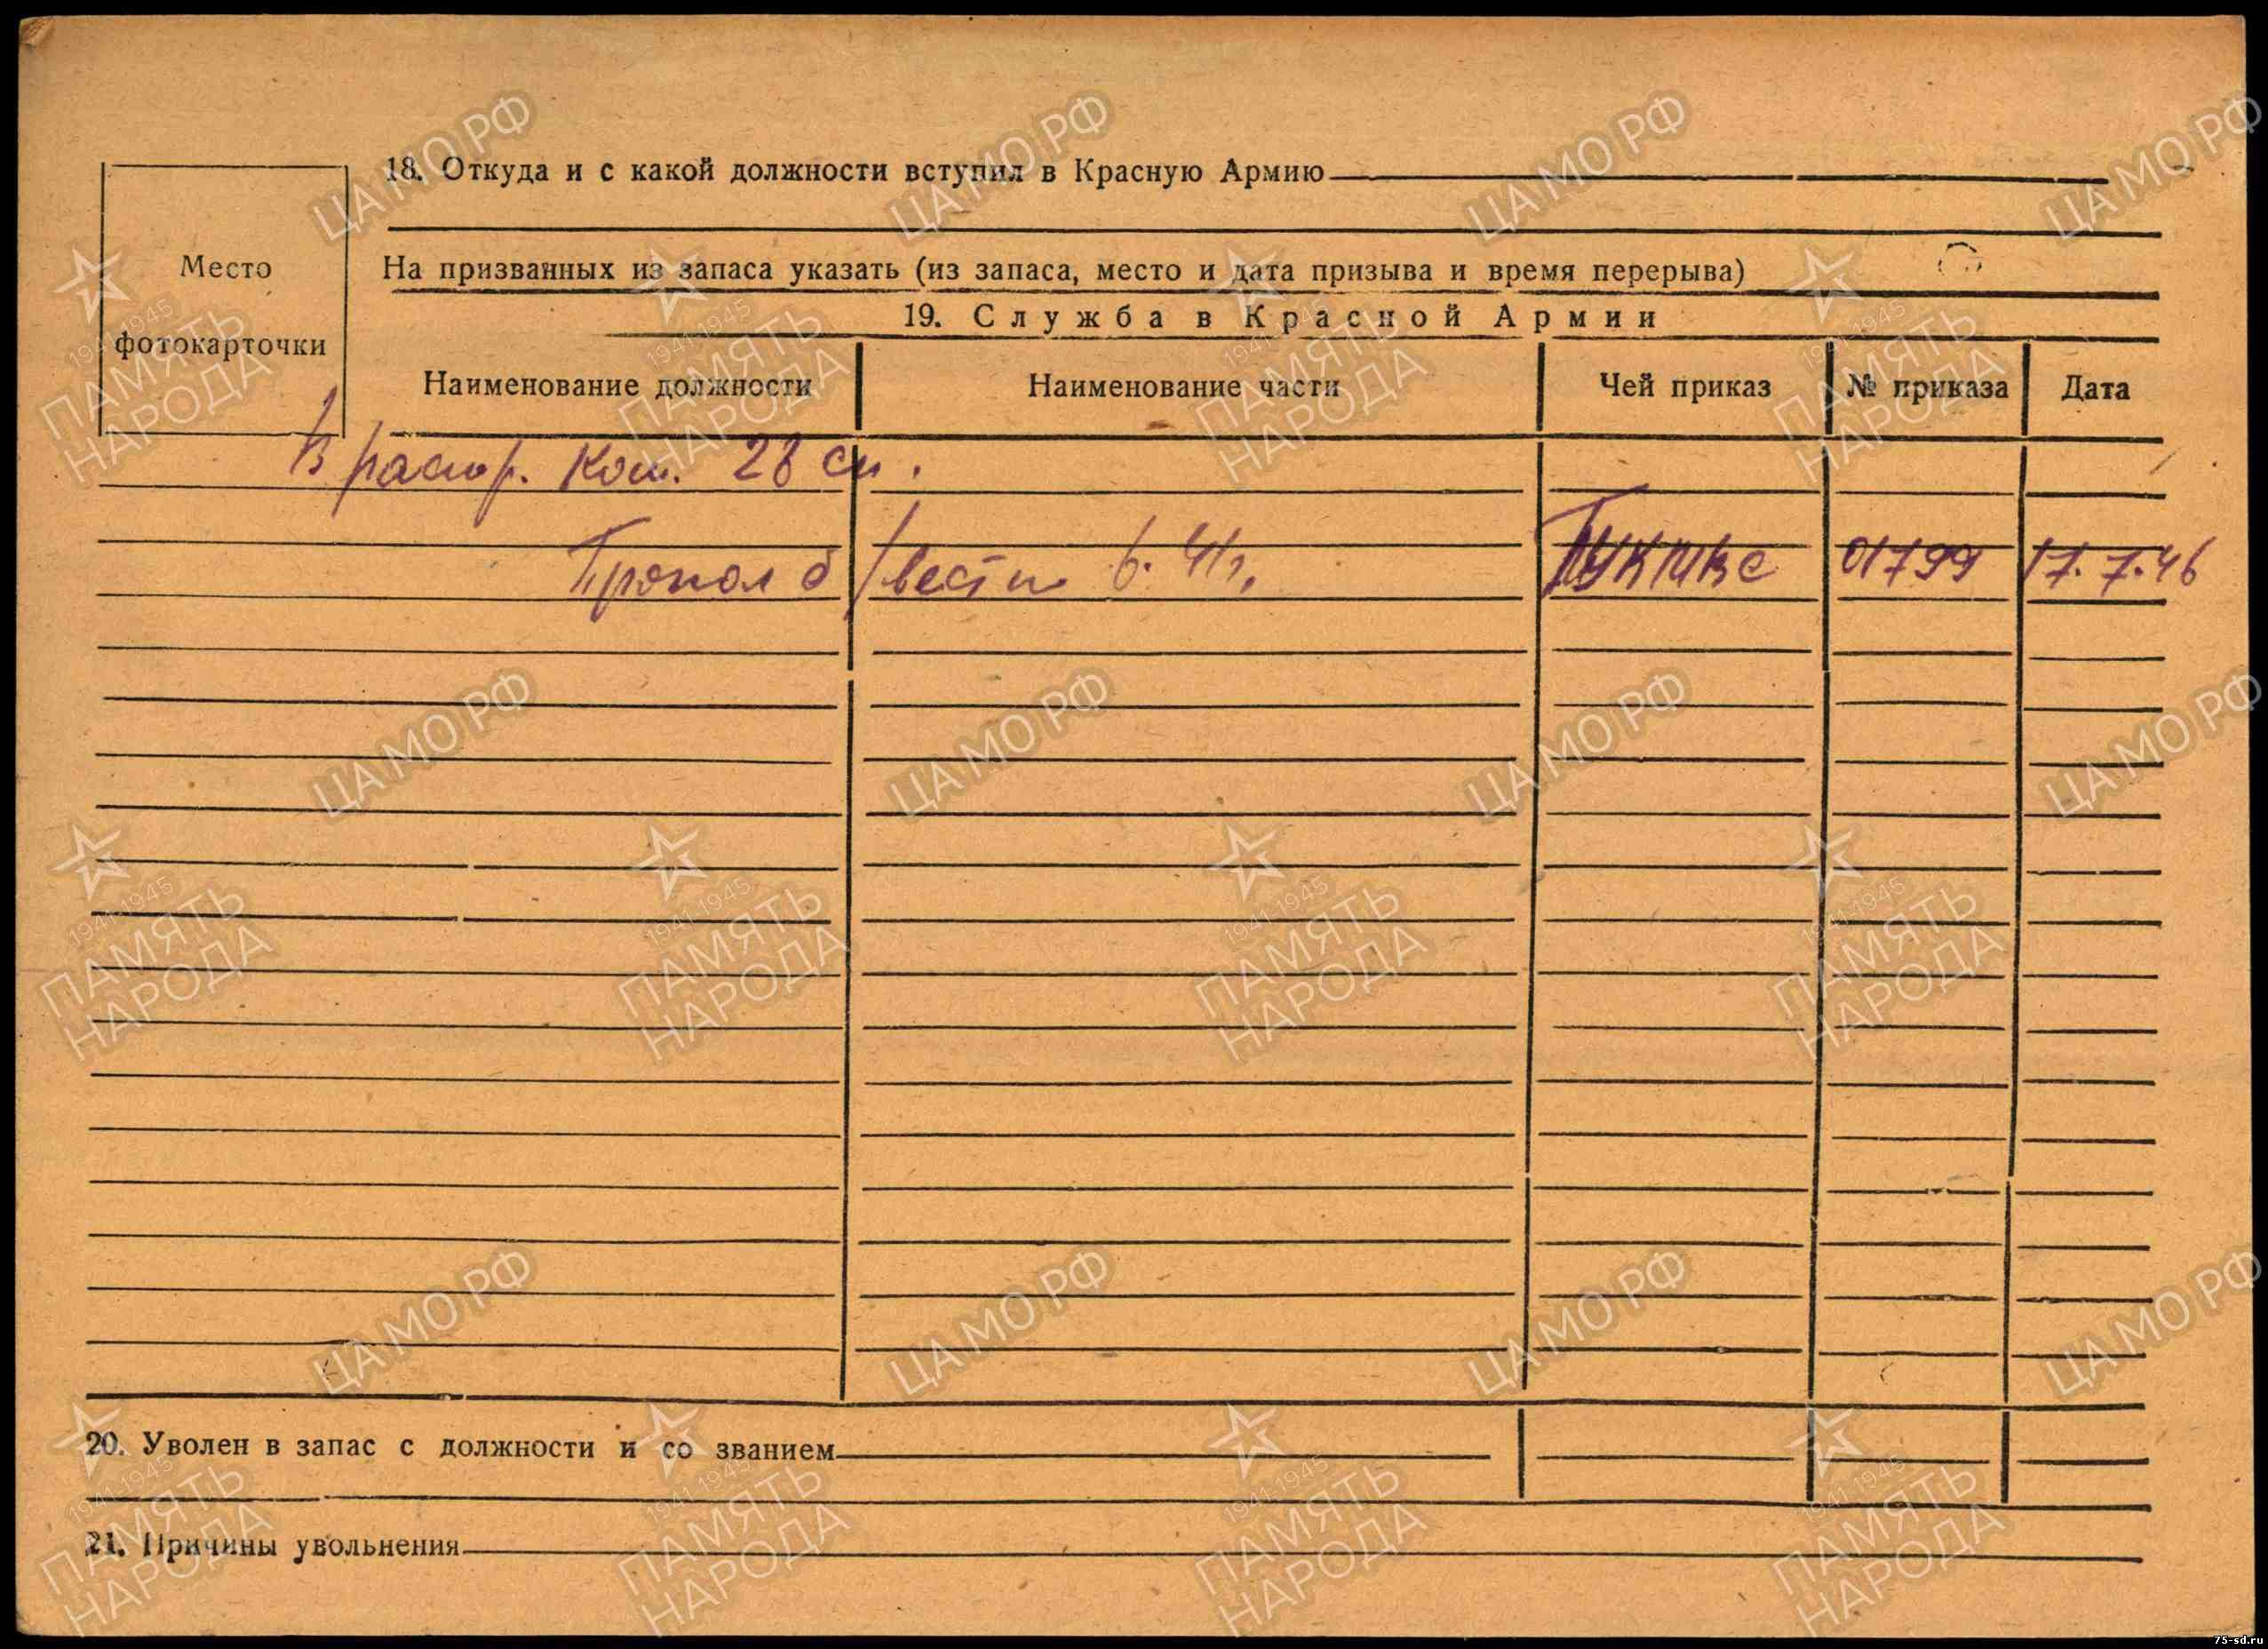 18. Откуда и с какой должности вступил в Красную Армию
На призванных из запаса указать (из запаса, место и дата призыва и время перерыва)
Место
фотокарточки
19. Служба в Красной Армии
Наименование должности
Наименование части
Чей приказ
№ приказа
Дата
В распор. Ком. 28 ск.
Пропал б/вести в 41г.
ГУК МВС
01799
17.7.46
20. Уволен в запас с должности и со званием
21. Причины увольнения
ЦАМО РФ
1941-1945
ПАМЯТЬ
НАРОДА
75-sd.ru